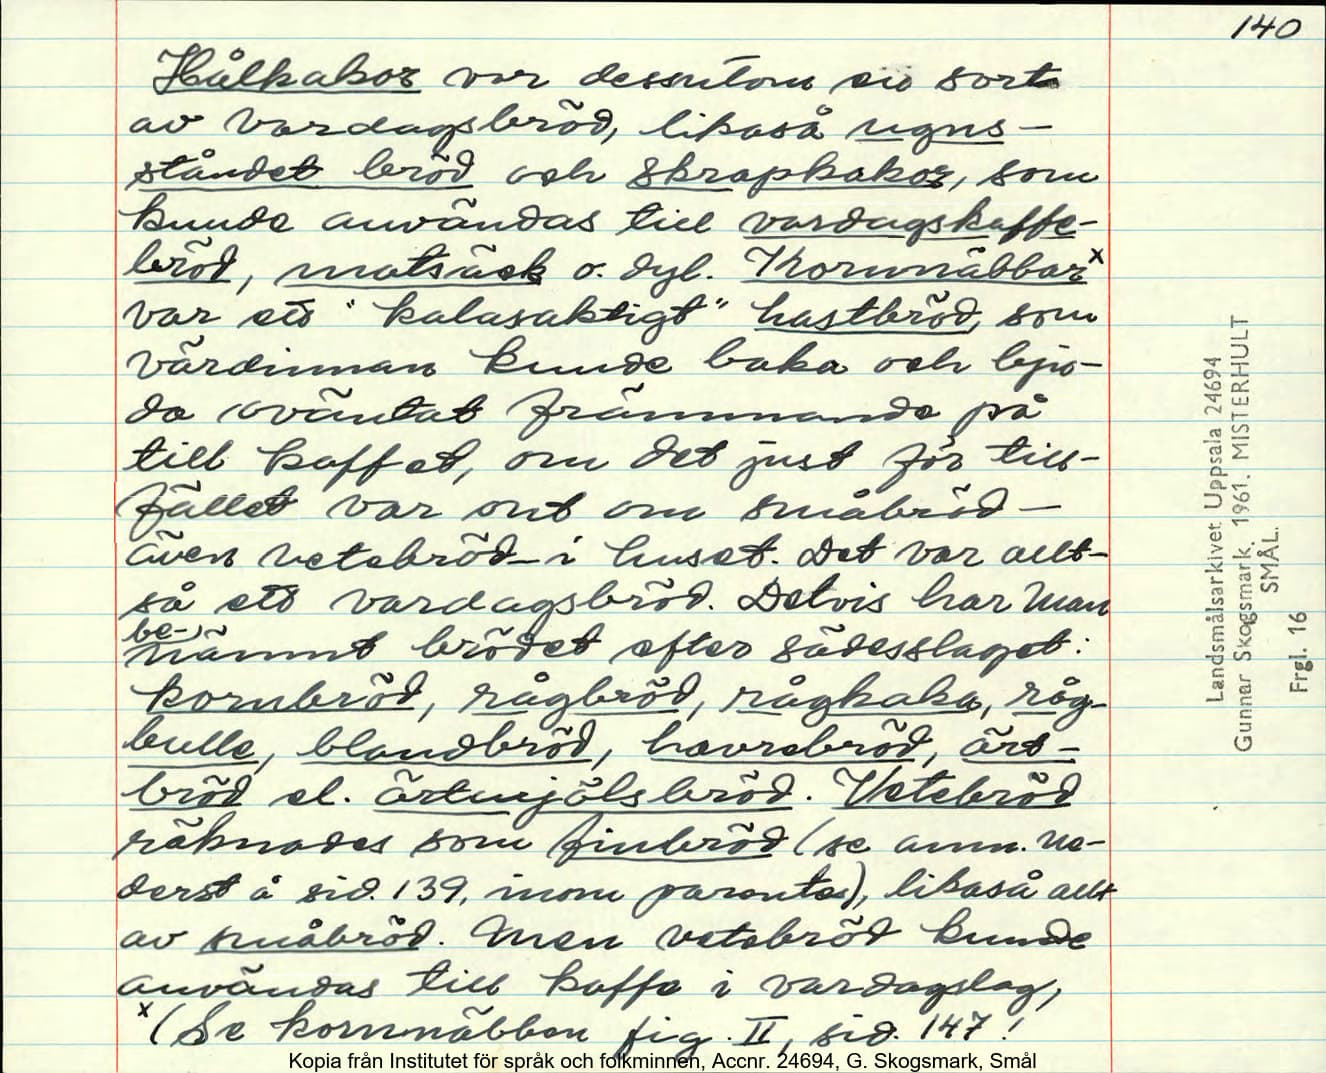 140
Hålkakor var dessutom en sort
av vardagsbröd, likaså ugns-
ståndet bröd och skrapkakor, som
kunde användas till vardagskaffe-
bröd, matsäck o. dyl. Kornnäbbar x
var ett "kalasaktigt" hastbröd, som
värdinnan kunde baka och bju-
da oväntat främmande på
till kaffet, om det just för till-
fället var ont om småbröd -
även vetebröd - i huset. Det var allt-
så ett vardagsbröd. Delvis har man
be-
nämnt brödet efter sädesslaget:
kornbröd, rågbröd, rågkaka, råg-
bulle, blandbröd, havrebröd, ärt-
bröd el. ärtmjölsbröd. Vetebröd
räknades som finbröd (se anm. ne-
derst å sid. 139, inom parentes), likaså allt
av småbröd. Men vetebröd kunde
användas till kaffe i vardagslag,
x (Se kornnäbben fig. II, sid. 147!
Landsmålsarkivet Uppsala 24694
Gunnar Skogsmark. 1961. MISTERHULT
SMÅL.
Frgl. 16
Kopia från Institutet för språk och folkminnen, Accnr. 24694, G. Skogsmark, Smål